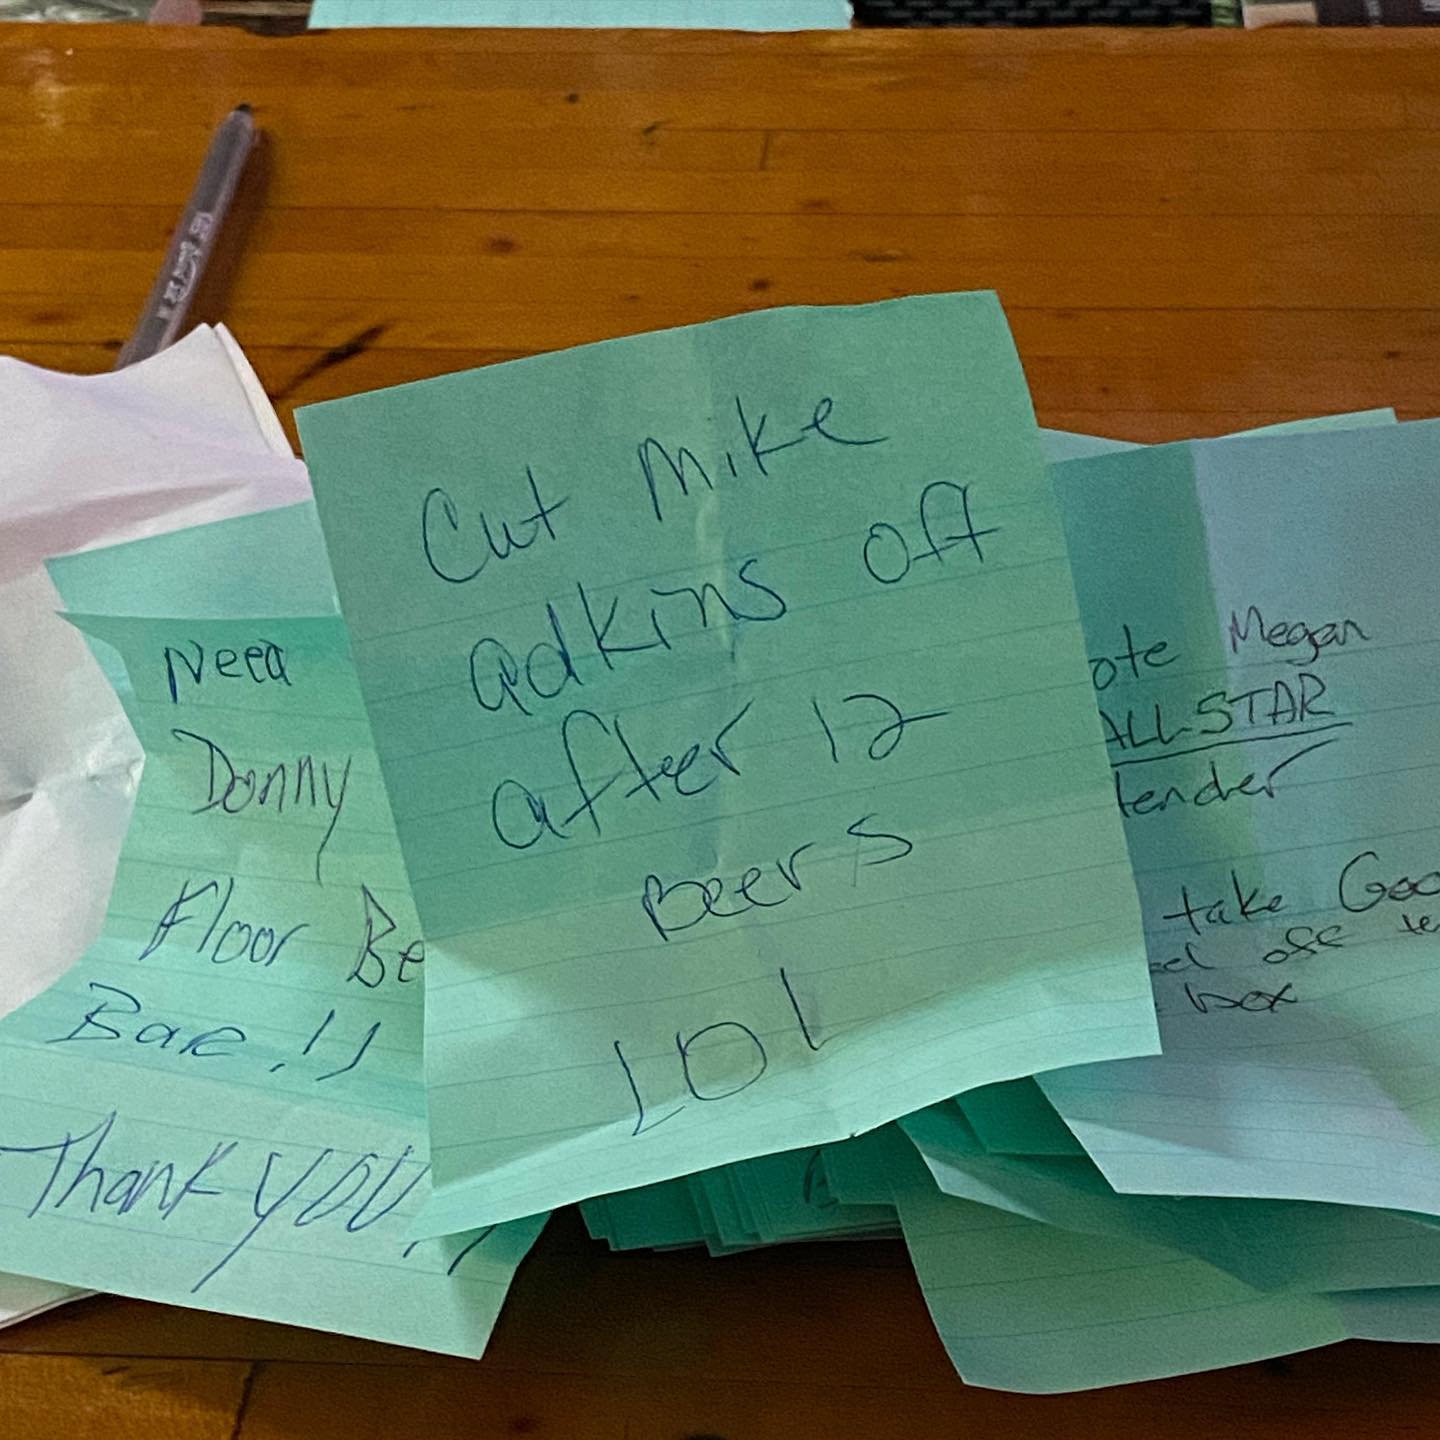 Cut Mike
adkins off
after 12
Beers
LOl
Need
Donny
Floor Be
Bar!!
Thank YOU!!
ote Megan
ALLSTAR
tender
take Goo
off te
box